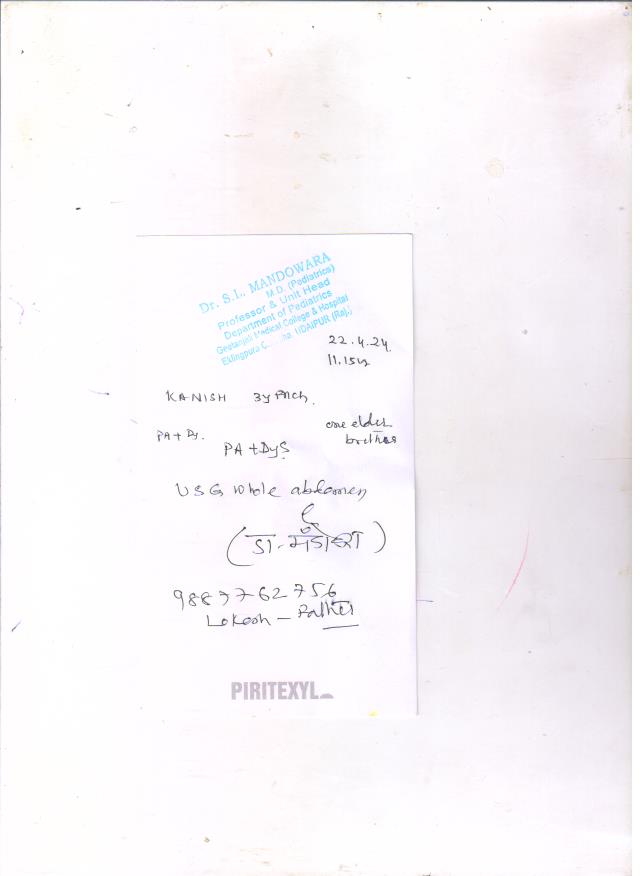 Dr. S.L. MANDOWARA
M.D. (Pediatrics)
Professor & Unit Head
Department of Pediatrics
Geetanjali Medical College & Hospital
Eklingpura UDAIPUR (Raj.)
22.4.24
KANISH 3y
one elder
brother
PA + Dy.
PA + DyS
USG whole abdomen
9887762756
Lokesh - Father
PIRITEXYL